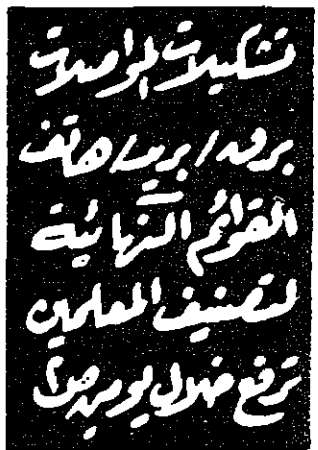 تشكيلات المواصلات
برق / بريد / هاتف
القوائم النهائية
لتصنيف المعلمين
ترفع خلال يومين